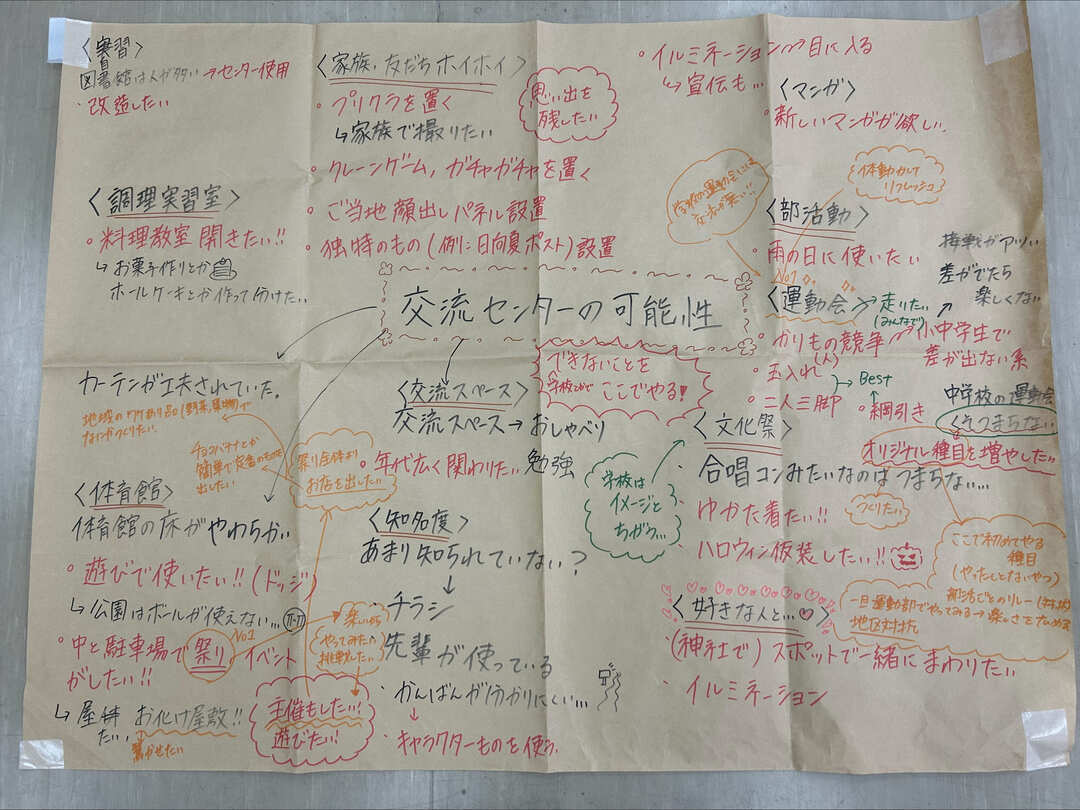 〈実習〉
図書館は人が多い→センター使用
・改造したい
〈調理実習室〉
・料理教室 開きたい!!
↳お菓子作りとか
ホールケーキとか作って分けたい
カーテンが工夫されていた。
地域のワケあり品(野菜、果物)で
なにかつくりたい
チョコバナナとか
簡単で定番のものを
出したい
祭り全体より
お店を出したい
〈体育館〉
体育館の床がやわらかい
・遊びで使いたい!!(ドッジ)
↳公園はボールが使えない…
・中と駐車場で祭り イベント
No1
がしたい!!
↳屋台
たい、
お化け屋敷!!
驚かせたい
主催もしたい!
遊びたい!
楽しいから
やってみたい
挑戦したい
〈家族、友だちホイホイ〉
・プリクラを置く
↳家族で撮りたい
思い出を
残したい
・クレーンゲーム、ガチャガチャを置く
・ご当地 顔出しパネル設置
・独特のもの(例:日向夏ポスト)設置
交流センターの可能性
〈交流スペース〉
交流スペース→おしゃべり
勉強
・年代広く関わりたい
できないことを
学校とかで ここでやる!
〈知名度〉
あまり知られていない?
↓
・チラシ
先輩が使っている
・かんばんが分かりにくい…
↓
・キャラクターものを使う
・イルミネーション→目に入る
↳宣伝も…
〈マンガ〉
・新しいマンガが欲しい
体動かして
リフレッシュ
〈部活動〉
・雨の日に使いたい
No1
〈運動会〉→走りたい
(みんなで)
接戦がアツい
差がでたら
楽しくない
・かりもの競争→小中学生で
(人)
差が出ない系
・玉入れ
・二人三脚
→Best
・綱引き
中学校の運動会
くそつまらない
オリジナル種目を増やしたい
〈文化祭〉
・合唱コンみたいなのはつまらない…
つくりたい
・ゆかた着たい!!
・ハロウィン仮装したい!!
学校は
イメージと
ちがう…
ここで初めてやる
種目
(やったことないやつ)
部活ごとのリレー
地区対抗
一旦運動部でやってみる→楽しさをひろめる
〈好きな人と…♡〉
(神社で)スポットで一緒にまわりたい
・イルミネーション